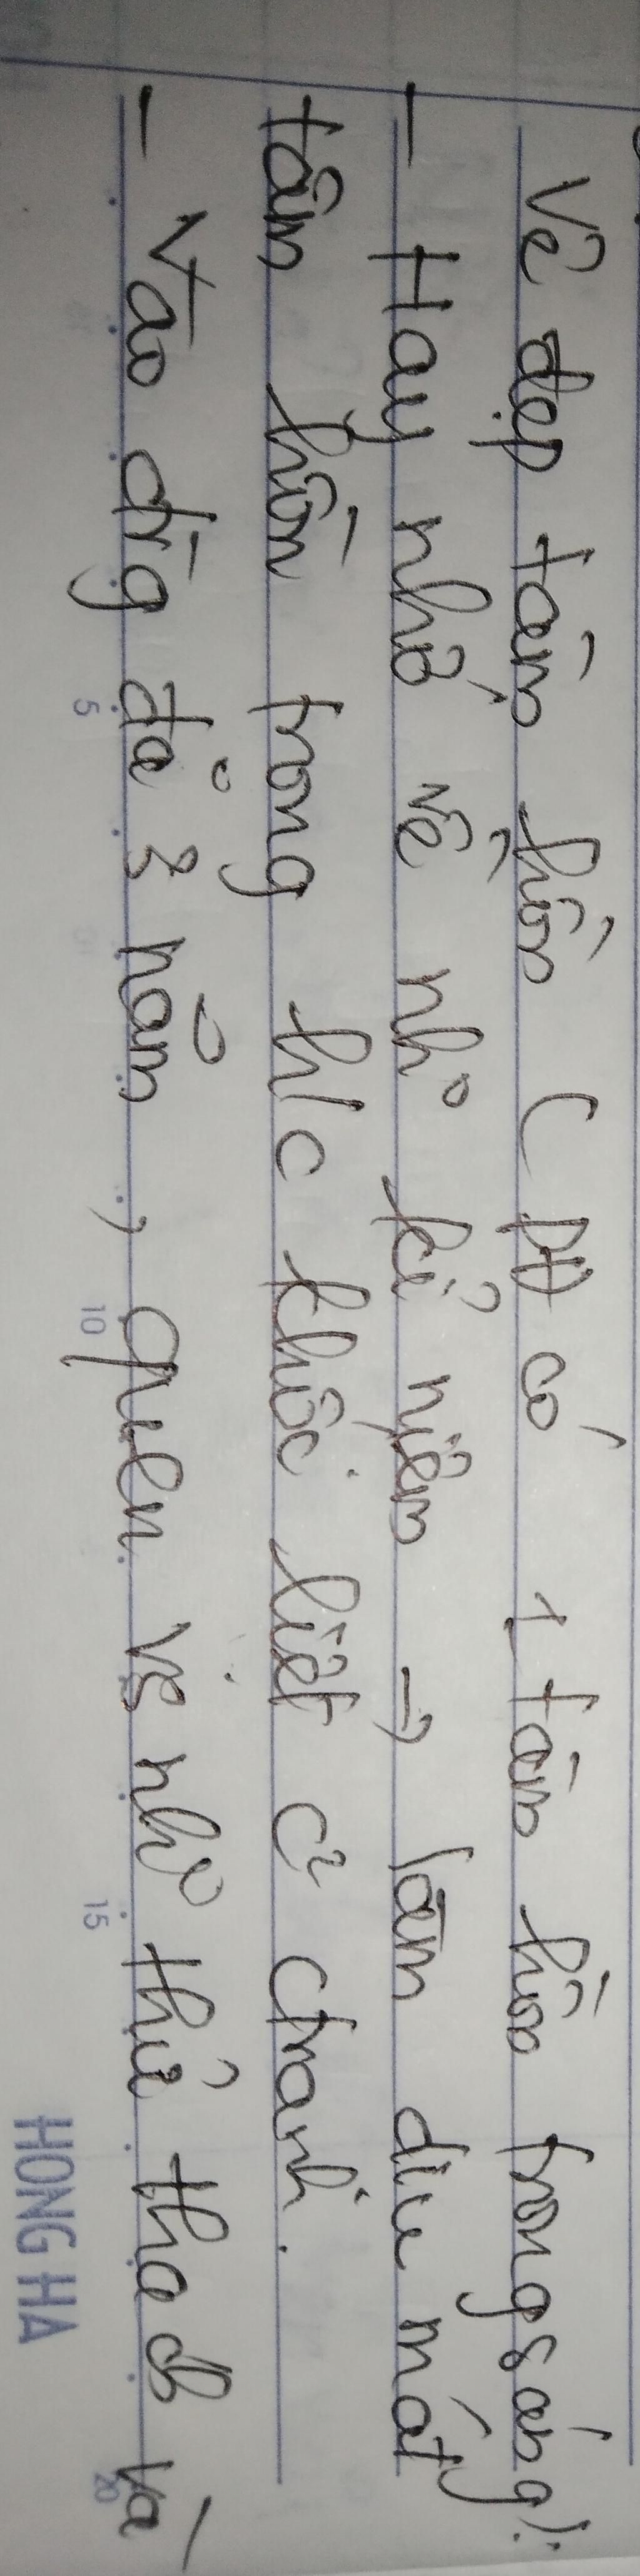 Vẻ đẹp tâm hồn (PĐ có 1 tâm hồn trong sáng):
- Hay nhớ về nh° kỉ niệm → làm dịu mát
tâm hồn trong h/c khốc liệt c² ctranh.
- Vào chg đã 3 năm, quen vs nh° thử thách và
5 10 15 20
HONG HA